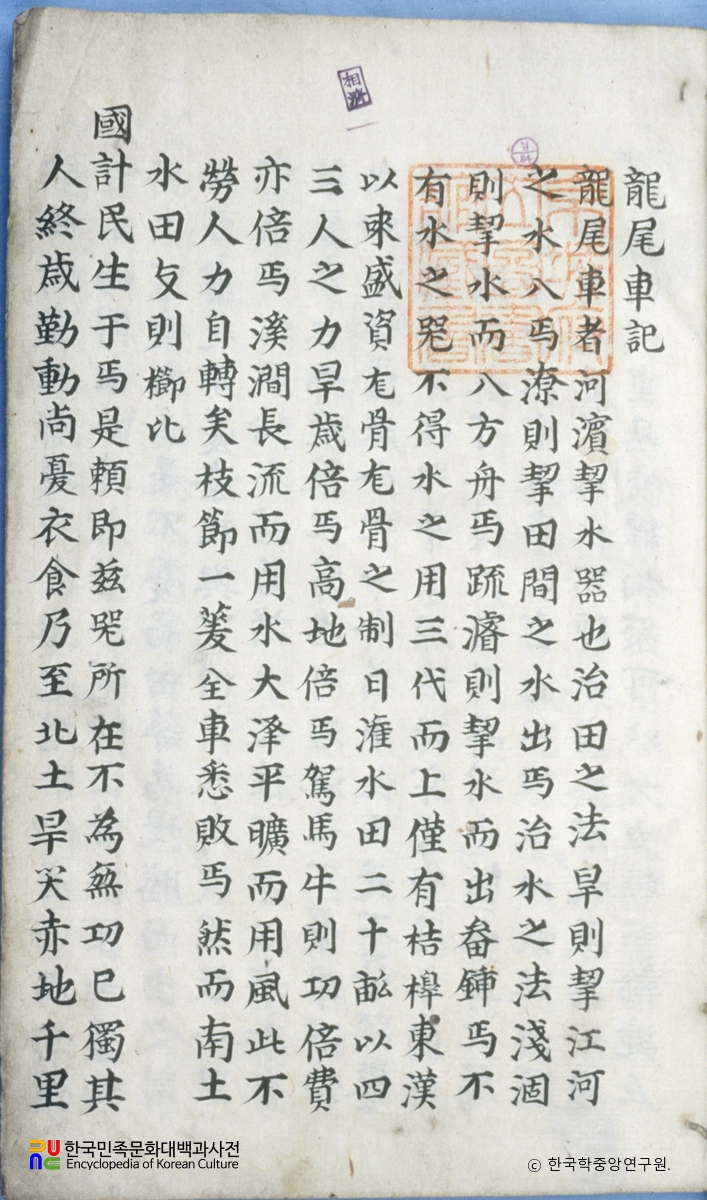 龍尾車記
龍尾車者河濱挈水器也治田之法旱則挈江河
之水入焉潦則挈田間之水出焉治水之法淺涸
則挈水而入方舟焉疏濬則挈水而出畚鍤焉不
有水之噐不得水之用三代而上僅有桔槹東漢
以來盛資龍骨龍骨之制日灌水田二十畝以四
三人之力旱歲倍焉高地倍焉駕馬牛則功倍費
亦倍焉溪澗長流而用水大泽平曠而用風此不
勞人力自轉矣枝節一菱全車悉敗焉然而南土
水田支則櫛比
國計民生于焉是頼即兹噐所在不為無功已獨其
人終歲勤動尚憂衣食乃至北土旱灾赤地千里
相濟
한국민족문화대백과사전
Encyclopedia of Korean Culture
© 한국학중앙연구원.